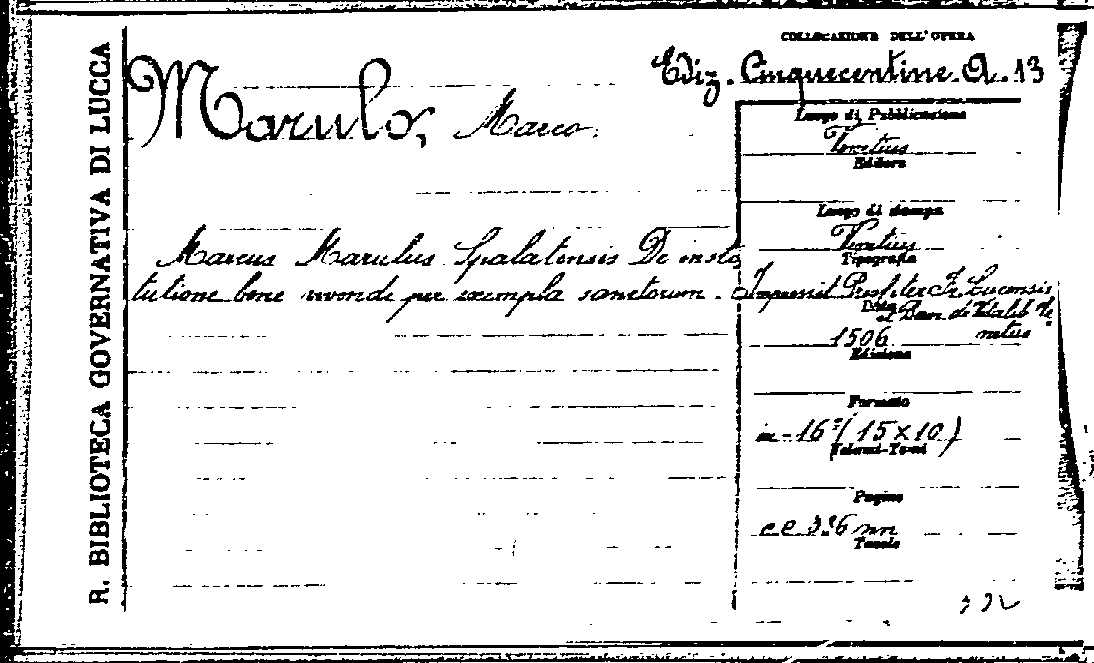 R. BIBLIOTECA GOVERNATIVA DI LUCCA
COLLOCAZIONE DELL'OPERA
Ediz. Cinquecentine. A. 13
Marulo, Marco.
Luogo di Pubblicazione
Venetius
Editore
Luogo di stampa
Venetius
Tipografia
Marcus Marulus Spalatensis De insti
tutione bene vivendi per exempla sanctorum.
Impressit Presbiter Fr. Lucensis
Data
et Bern. de Vitalib Ve
netus
1506
Edizione
Formato
in-16° (15 x 10)
Volumi-Tomi
Pagine
cc
nn
Tavole
332